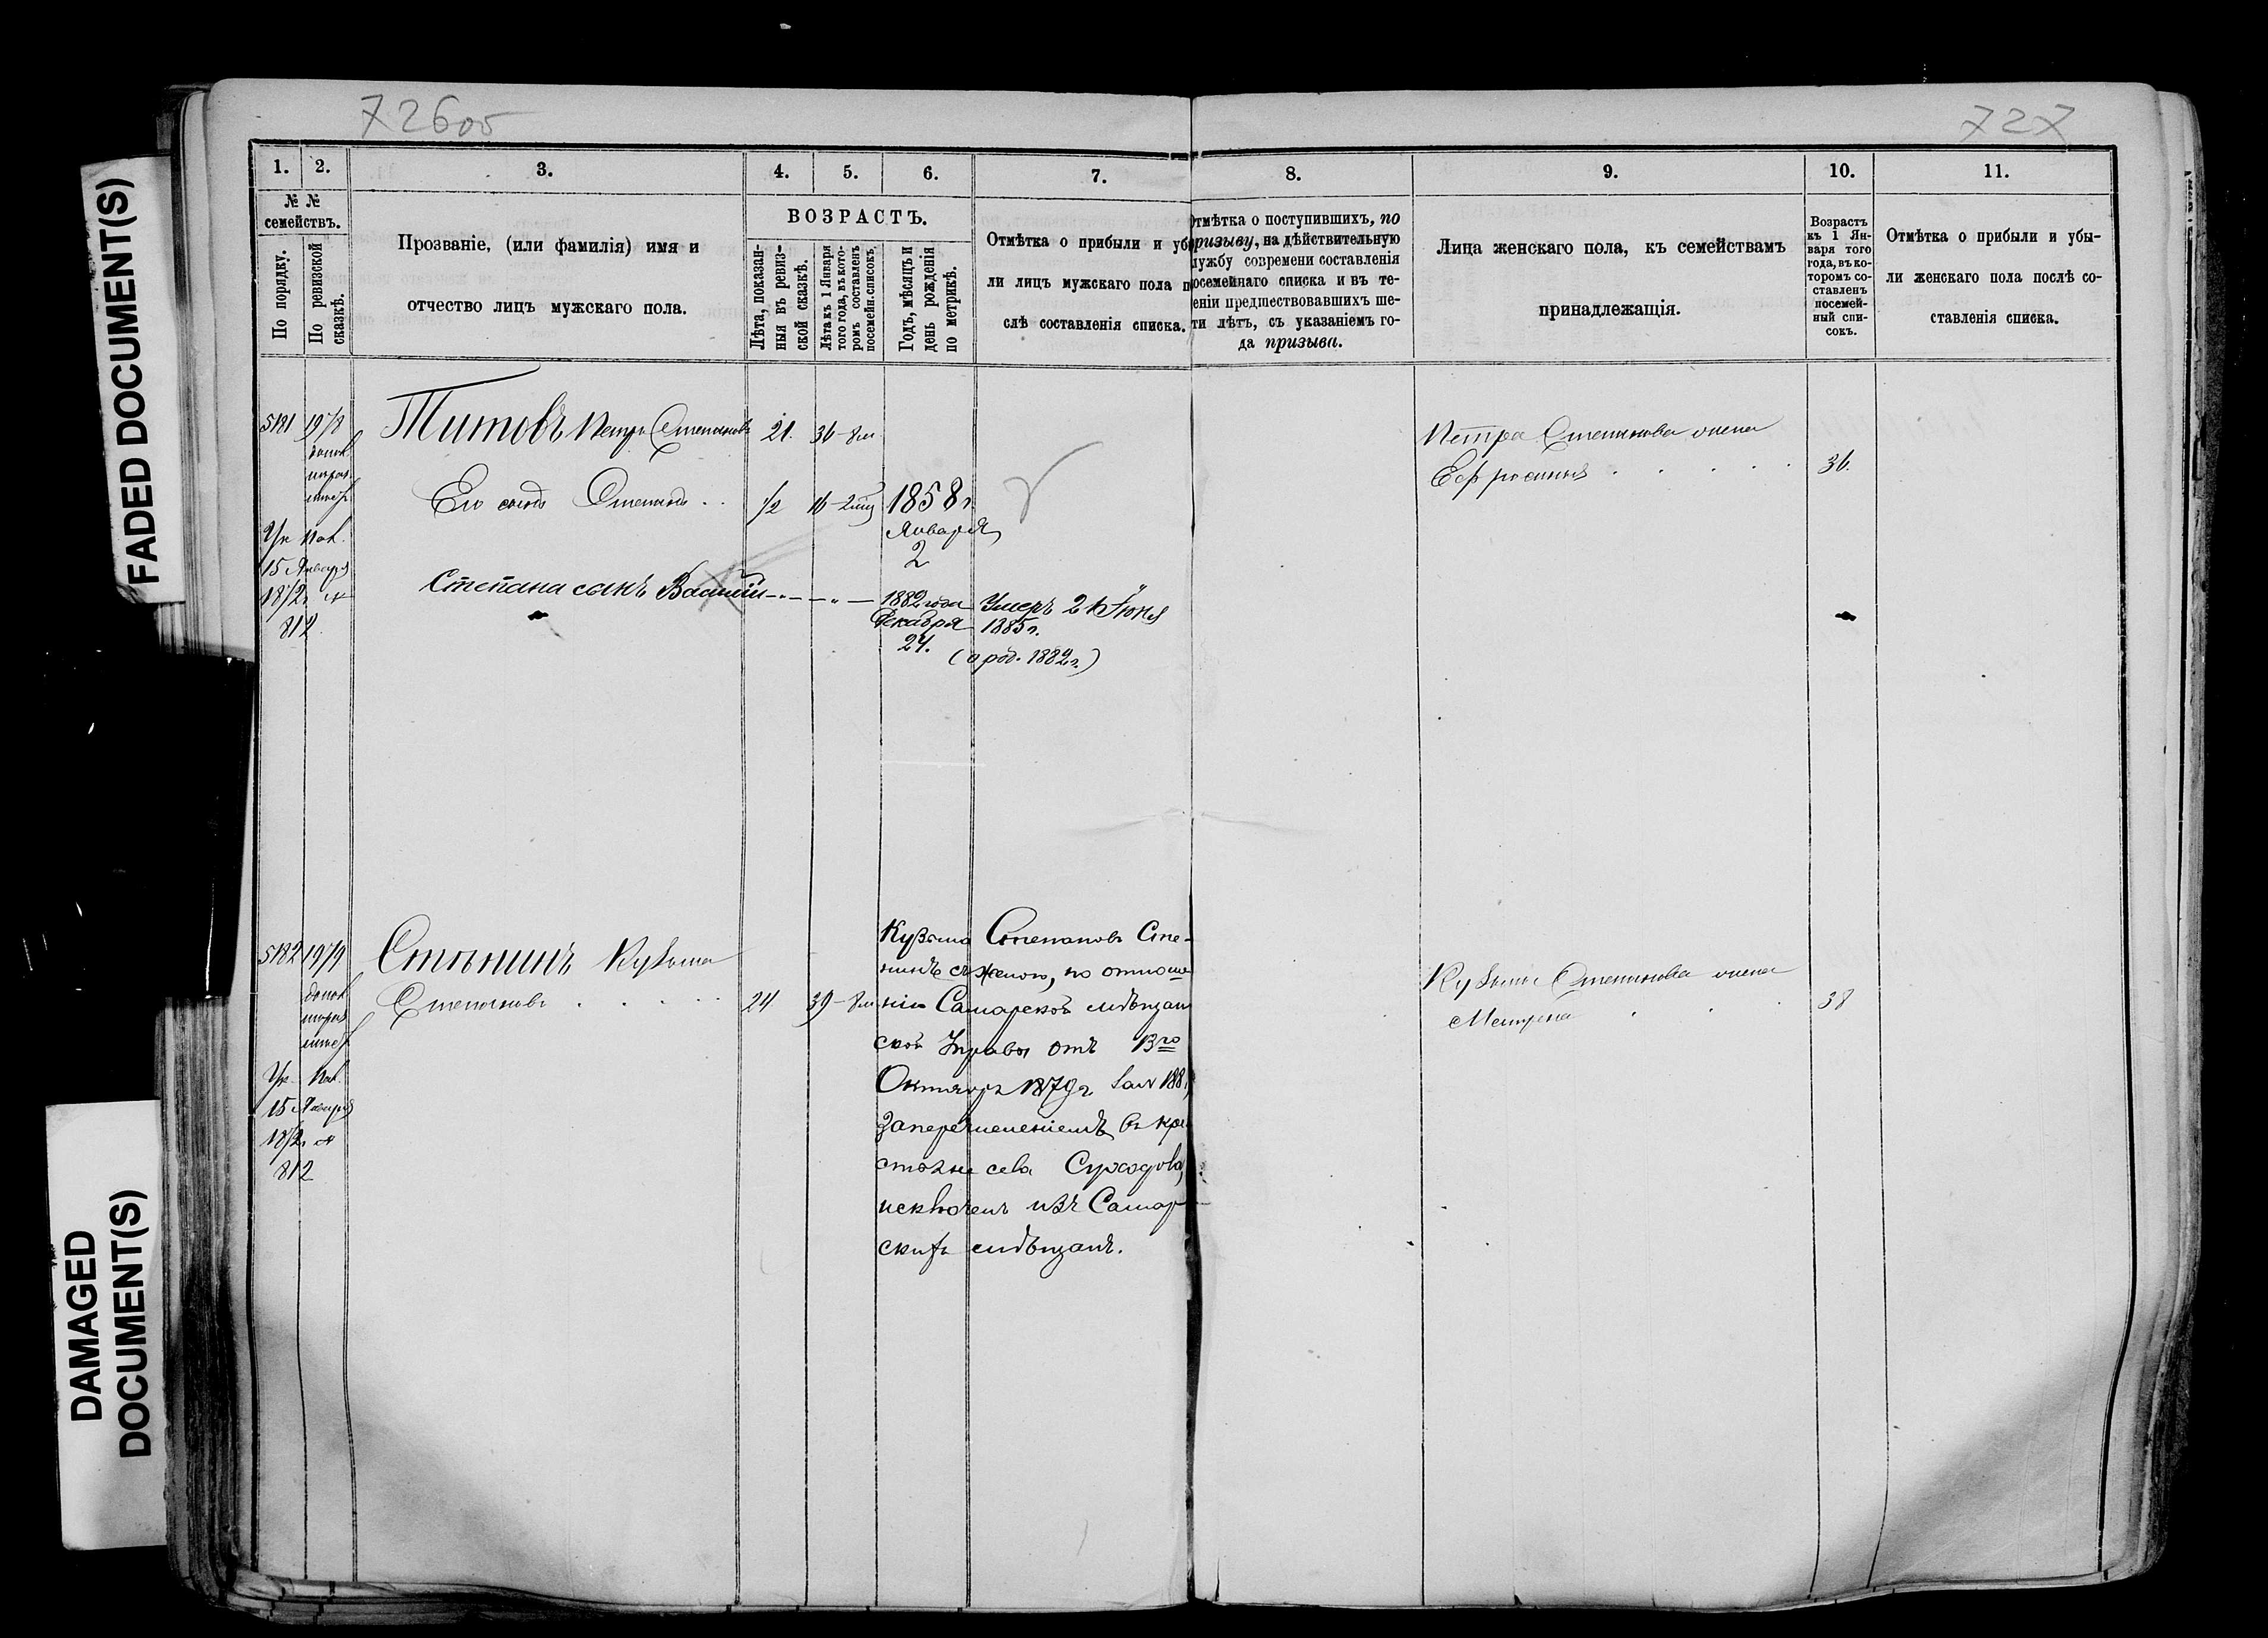 726об
727
FADED DOCUMENT(S)
DAMAGED
DOCUMENT(S)
1.
2.
3.
4.
5.
6.
7.
8.
9.
10.
11.
№ №
семействъ.
По порядку.
По ревизской
сказкѣ.
Прозваніе, (или фамилія) имя и
отчество лицъ мужскаго пола.
ВОЗРАСТЪ.
Лѣта, показан-
ныя въ ревиз-
ской сказкѣ.
Лѣта къ 1 Января
того года, въ кото-
ромъ составленъ
посемейн. списокъ.
Годъ, мѣсяцъ и
день рожденія
по метрикѣ.
Отмѣтка о прибыли и убы
ли лицъ мужскаго пола по
слѣ составленія списка.
Отмѣтка о поступившихъ, по
призыву, на дѣйствительную
лужбу современи составленія
посемейнаго списка и въ те-
еніи предшествовавшихъ ше-
ти лѣтъ, съ указаніемъ го-
да призыва.
Лица женскаго пола, къ семействамъ
принадлежащія.
Возрастъ
къ 1 Ян-
варя того
года, въ ко-
торомъ со-
ставленъ
посемей-
ный спи-
сокъ.
Отмѣтка о прибыли и убы-
ли женскаго пола послѣ со-
ставленія списка.
5181 1978
Титовъ Петръ Степановъ 21. 36-8м
Его сынъ Степанъ 1/2 16-2 1858 г.
Января
2
Ук Пал.
15 Января
1872 г. №
812
Степана сынъ Василій 1882 года
Декабря
24.
Умеръ 21 Іюня
1885 г.
(о род. 1882 г.)
Петра Степанова жена
Ефросинья 36.
5182 1979
Стѣнинъ Кузьма
Степановъ 24 39-8м
Ук Пал.
15 Января
1872 г. №
812
Кузьма Степановъ Сте-
нинъ съ женою, по отноше
нію Самарской мѣщан
ской Управы отъ 13го
Октября 1879 г.
За перечисленіемъ въ кре
стьяне села
исключенъ изъ Самар
скихъ мѣщанъ.
Кузьмы Степанова жена
Матрена 38